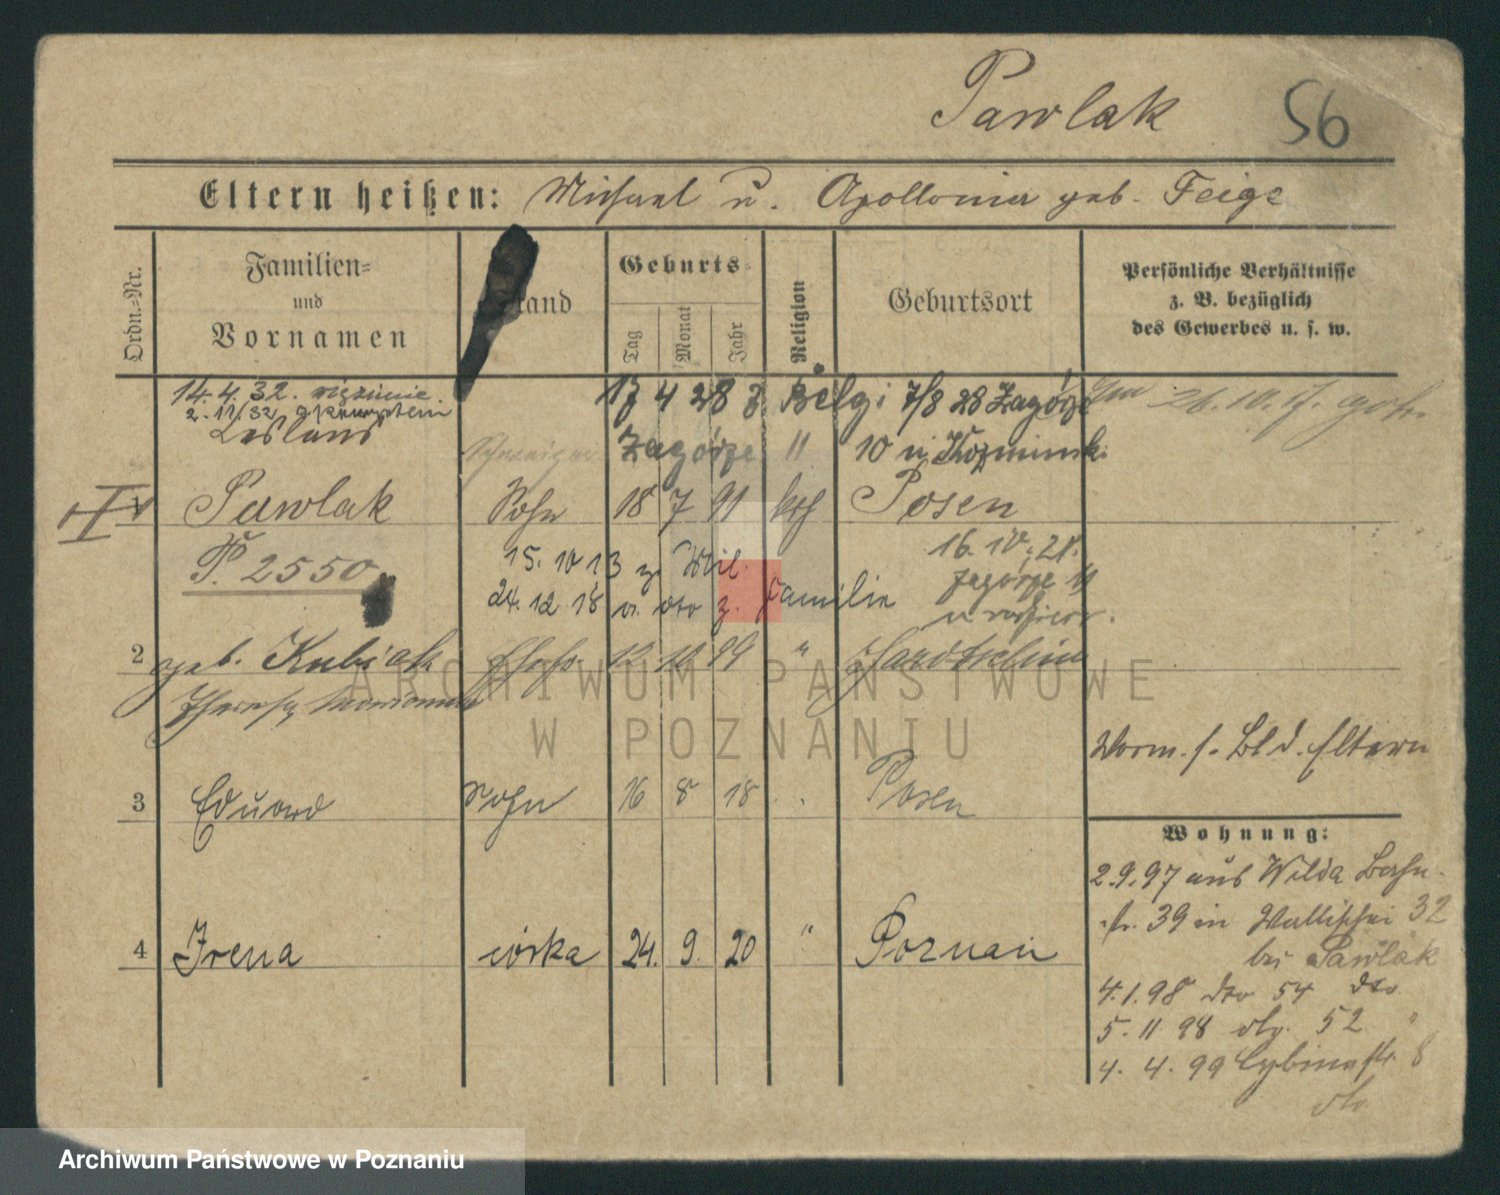 Pawlak 56
Eltern heißen: Michael u. Apollonia geb. Feige
Ordn.=Nr.
Familien=
und
Vornamen
Stand
Geburts=
Tag
Monat
Jahr
Religion
Geburtsort
Persönliche Verhältnisse
z. B. bezüglich
des Gewerbes u. s. w.
14.4.32.
2. 11/32
17 4 28 z Belgi 7/8 28 Zagórze
26.10.17.
Zagórze 11 10 Kozminski
Pawlak Sohn 18 7 91 kth Posen
P. 2550
15. 10 13 z. Mil.
16. 10. 21.
Zagórze 11
24. 12 18 v. dto z. Familie
2 geb. Kubiak Ehefr 12 10 89 "
Theresa Marianna
Vorm. s. Bl d. Eltern
3 Eduard Sohn 16 8 18 Posen
4 Irena córka 24. 9. 20 " Poznań
Wohnung:
2.9.97 aus Wilda Bahn-
str. 39 in Wallischei 32
bei Pawlak
4.1.98 dto 54 dto
5. 11 98 dto. 52 "
4. 4. 99 Cybinastr 8
dto
ARCHIWUM PAŃSTWOWE
W POZNANIU
Archiwum Państwowe w Poznaniu